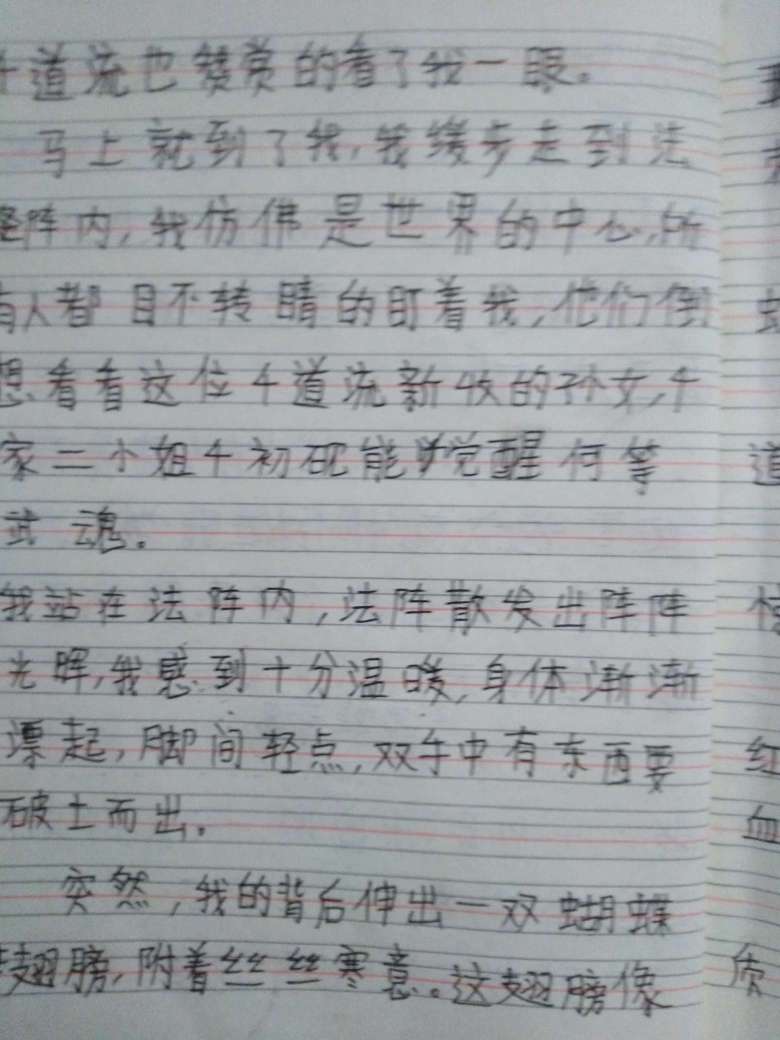 千道流也赞赏的看了我一眼。
马上就到了我,我缓步走到法
阵内,我仿佛是世界的中心,所
有人都目不转睛的盯着我,他们倒
想看看这位千道流新收的孙女,千
家二小姐千初砚能觉醒何等
武魂。
我站在法阵内,法阵散发出阵阵
光晖,我感到十分温暖,身体渐渐
漂起,脚间轻点,双手中有东西要
破土而出。
突然,我的背后伸出一双蝴蝶
翅膀,附着丝丝寒意。这翅膀像
道
红
血
质